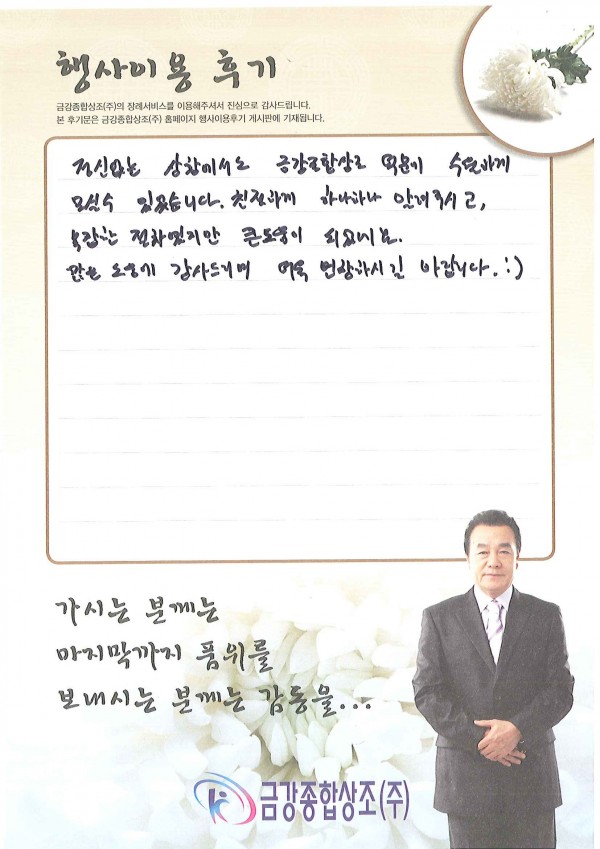 행사이용 후기
금강종합상조(주)의 장례서비스를 이용해주셔서 진심으로 감사드립니다.
본 후기문은 금강종합상조(주) 홈페이지 행사이용후기 게시판에 기재됩니다.
정신없는 상황에서도 금강종합상조 덕분에 수월하게
모실수 있었습니다. 친절하게 하나하나 알려주시고,
복잡한 절차였지만 큰도움이 되었네요.
많은 도움에 감사드리며 더욱 번창하시길 바랍니다. :)
가시는 분께는
마지막까지 품위를
보내시는 분께는 감동을...
금강종합상조(주)